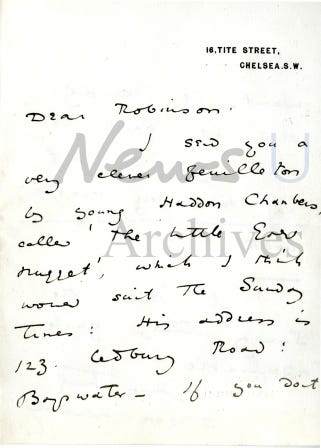 16, TITE STREET,
CHELSEA. S.W.
Dear Robinson.
I send you a
very clever feuilleton
by young Haddon Chambers,
called 'The Little Ever
Nugget', which I think
would suit the Sunday
Times: His address is
123. Ledbury Road:
Bayswater — If you don't
NewsU
Archives